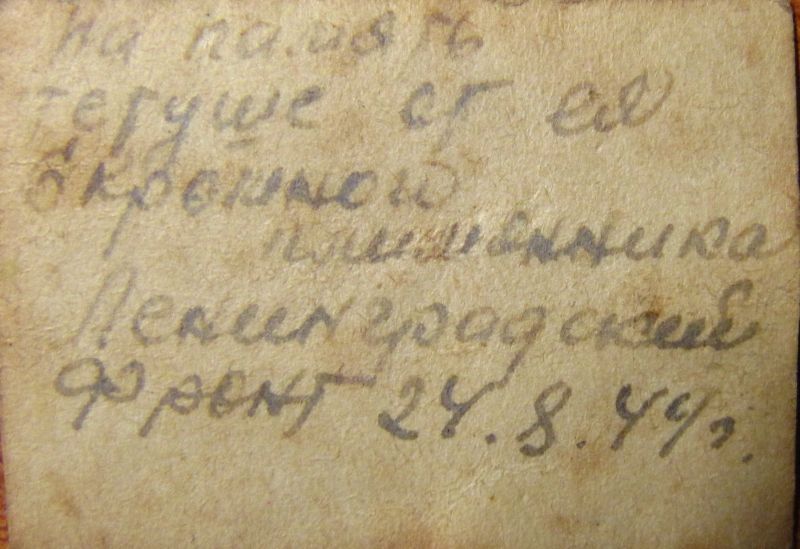 На память
тетуше от ея
скромного
племенника
Ленинградский
Фронт 24.8.44г.